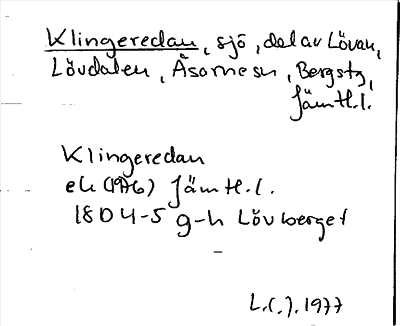 Klingeredan, sjö, del av Lövan,
Lövdalen, Åsarne sn, Bergs tg,
Jämtl.l.
Klingeredan
ek (1976) Jämtl.l.
18 D 4-5 g-h Lövberget
L.(.).1977